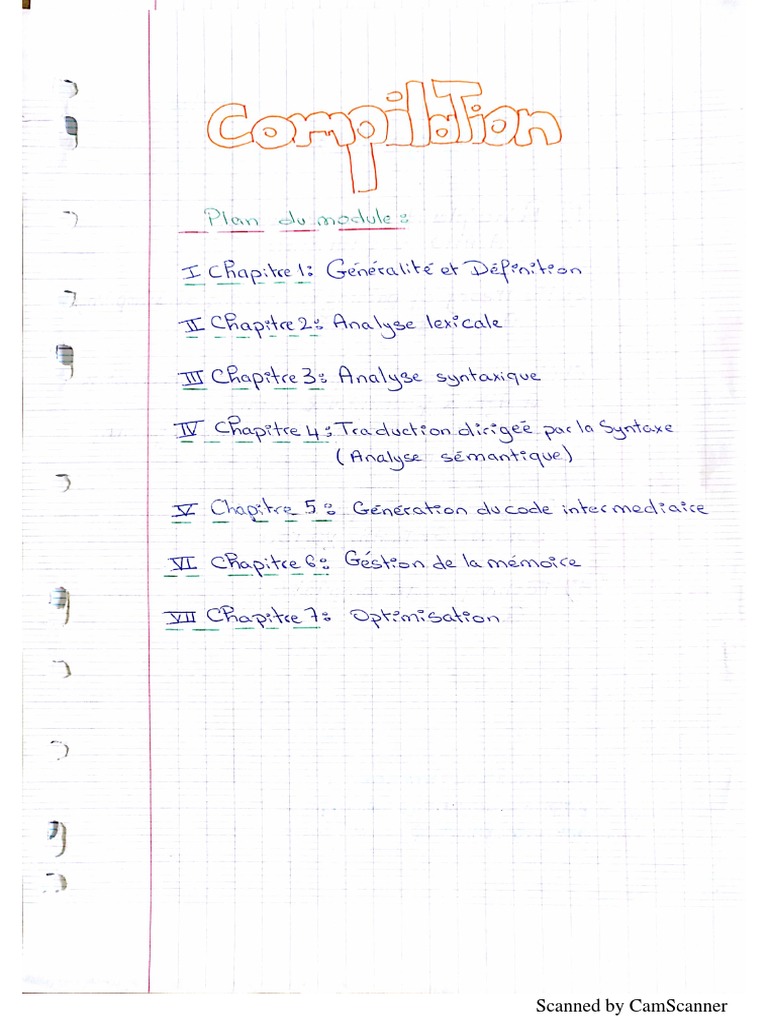 CompilaTion
Plan du module :
I Chapitre 1: Généralité et Définition
II Chapitre 2: Analyse lexicale
III Chapitre 3: Analyse syntaxique
IV Chapitre 4: Traduction dirigeé par la Syntaxe
(Analyse sémantique)
V Chapitre 5: Génération du code intermediaire
VI Chapitre 6: Géstion de la mémoire
VII Chapitre 7: Optimisation
Scanned by CamScanner